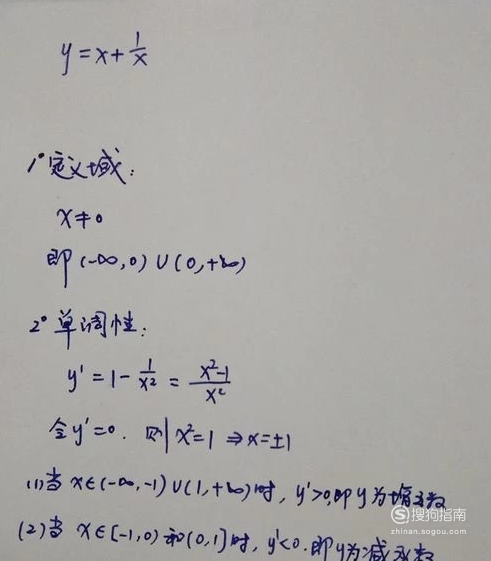 y = x + 1/x
1° 定义域:
x ≠ 0
即 (-∞, 0) ∪ (0, +∞)
2° 单调性:
y' = 1 - 1/x² = (x²-1)/x²
令 y' = 0. 则 x² = 1 ⇒ x = ±1
(1) 当 x∈(-∞, -1) ∪ (1, +∞) 时, y' > 0, 即 y 为增函数
(2) 当 x∈[-1, 0) 和 (0, 1] 时, y' < 0. 即 y 为减函数
搜狗指南
zhinan.sogou.com